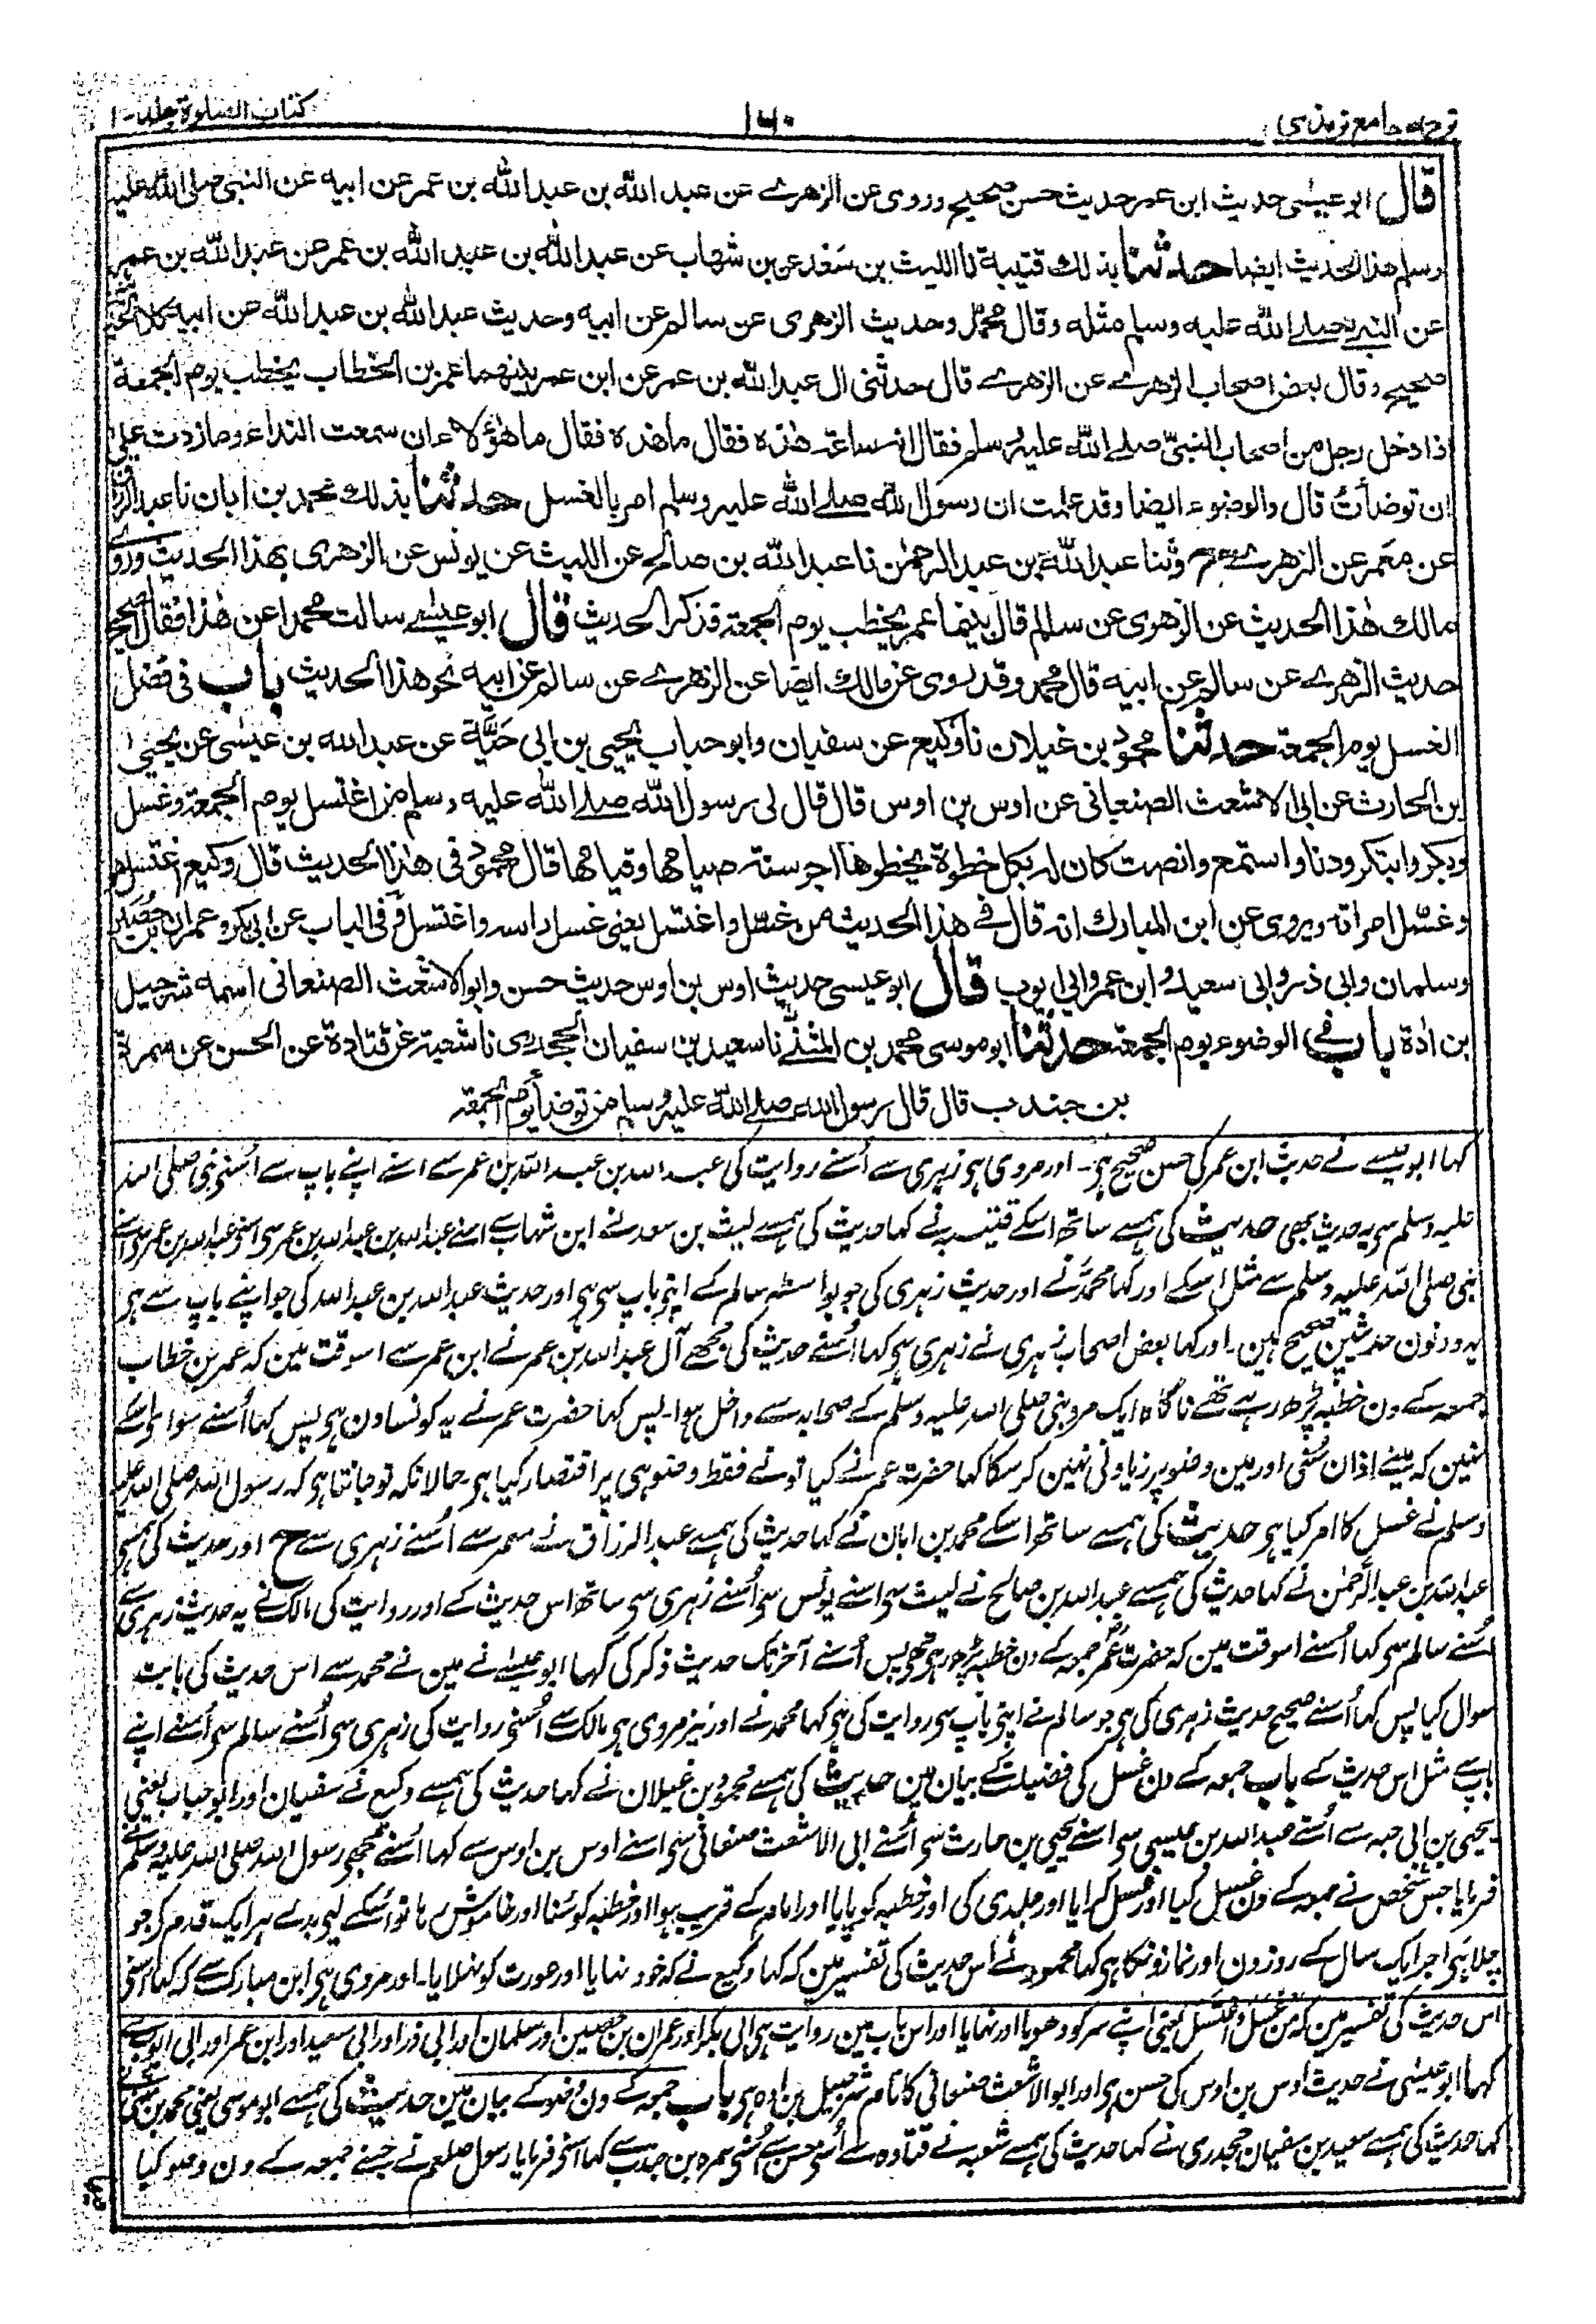 ترجمه جامع ترمذی
۱۶۰
کتاب الصلوة جلد-۱
قال ابو عیسٰی حدیث ابن عمر حدیث حسن صحیح وروی عن الزهرے عن عبد الله بن عبد الله بن عمر عن ابیه عن النبی صلی الله علیه
وسلم هذا الحدیث ایضا حدثنا بذلك قتیبة نا اللیث بن سعد عن بن شهاب عن عبد الله بن عبد الله بن عمر عن عبد الله بن عمر
عن النبی صلے الله علیه وسلم مثله وقال محمد وحدیث الزهری عن سالم عن ابیه وحدیث عبد الله بن عبد الله عن ابیه کلا الحدیثین
صحیح وقال بعض اصحاب الزهرے عن الزهرے قال حدثنی ال عبد الله بن عمر عن ابن عمر بینهما عمر بن الخطاب یخطب یوم الجمعة
اذا دخل رجل من اصحاب النبیّ صلے الله علیه وسلم فقال ایة ساعة هذه فقال ماهذه فقال ماهؤلاء ان سمعت النداء ومازدت علی
ان توضأتُ قال والوضوء ایضا وقد علمت ان رسول الله صلے الله علیه وسلم امر بالغسل حدثنا بذلك محمد بن ابان نا عبد الرزاق
عن معمر عن الزهرے ح وثنا عبد الله بن عبد الرحمٰن نا عبد الله بن صالح عن اللیث عن یونس عن الزهری بهذا الحدیث وروٰی
مالك هٰذا الحدیث عن الزهری عن سالم قال بینما عمر یخطب یوم الجمعة فذکر الحدیث قال ابو عیسٰے سالت محمدا عن هٰذا فقال الصحیح
حدیث الزهرے عن سالم عن ابیه قال محمد وقد روی عن مالك ایضا عن الزهرے عن سالم عن ابیه نحو هذا الحدیث باب فی فضل
الغسل یوم الجمعة حدثنا محمود بن غیلان نا وکیع عن سفیان وابو جناب یحیی بن ابی حیَّة عن عبد الله بن عیسٰی عن یحیی
بن الحارث عن ابی الاشعث الصنعانی عن اوس بن اوس قال قال لی رسول الله صلے الله علیه وسلم من اغتسل یوم الجمعة وغسل
وبکر وابتکر ودنا واستمع وانصت کان له بکل خطوة یخطوها اجر سنة صیامها وقیامها قال محمود فی هٰذا الحدیث قال وکیع اغتسل هو
وغسّل امراته ویروی عن ابن المبارك انه قال فے هذا الحدیث من غسّل واغتسل یعنی غسل راسه واغتسل وفی الباب عن ابی بکر وعمران بن حُصَین
وسلمان وابی ذر وابی سعید وابن عمر وابی ایوب قال ابو عیسی حدیث اوس بن اوس حدیث حسن وابو الاشعث الصنعانی اسمه شرحبیل
بن اٰدة باب فے الوضوء یوم الجمعة حدثنا ابو موسی محمد بن المثنّٰے نا سعید بن سفیان الجحدری نا شعبة عن قتادة عن الحسن عن سمرة
بن جندب قال قال رسول الله صلے الله علیه وسلم من توضأ یوم الجمعة
کہا ابو عیسے نے حدیث ابن عمر کی حسن صحیح ہی۔ اور مروی ہی زہری سے اُسنے روایت کی عبد اللہ بن عبد اللہ بن عمر سے اسنے اپنے باپ سے اُسنے نبی صلی اللہ
علیہ وسلم سی یہ حدیث بھی حدیث کی ہمسے ساتھ اسکے قتیبہ نے کہا حدیث کی ہمسے لیث بن سعد نے ابن شہاب سے اسنے عبد اللہ بن عبد اللہ بن عمر سی اسنے عبد اللہ بن عمر سے اسنے
نبی صلی اللہ علیہ وسلم سے مثل اسکے اور کہا محمدؒ نے اور حدیث زہری کی جو بواسطہ سالم کے اپنے باپ سی ہی اور حدیث عبد اللہ بن عبد اللہ کی جو اپنے باپ سے ہی
یہ دونون حدیثین صحیح ہین۔ اور کہا بعض اصحاب زہری نے زہری سی کہا اُسنے حدیث کی مجھے آل عبد اللہ بن عمر نے ابن عمر سے اسوقت مین کہ عمر بن خطاب
جمعہ کے دن خطبہ پڑھ رہے تھے ناگاہ ایک مرد نبی صلی اللہ علیہ وسلم کے صحابہ سے داخل ہوا۔ پس کہا حضرت عمر نے یہ کونسا دن ہی پس کہا اُسنے سوا اسکے
نہین کہ مینے اذان سُنی اور مین وضو پر زیادتی نہین کر سکا کہا حضرت عمر نے کیا تو نے فقط وضو ہی پر اقتصار کیا ہی۔ حالانکہ تو جانتا ہی کہ رسول اللہ صلی اللہ علیہ
وسلم نے غسل کا امر کیا ہی حدیث کی ہمسے ساتھ اسکے محمد بن ابان نے کہا حدیث کی ہمسے عبد الرزاق نے معمر سے اُسنے زہری سے ح اور حدیث کی ہمسے
عبد اللہ بن عبد الرحمٰن نے کہا حدیث کی ہمسے عبد اللہ بن صالح نے لیث سی اسنے یونس سی اُسنے زہری سی ساتھ اس حدیث کے اور روایت کی مالک نے یہ حدیث زہری سے
اُسنے سالم سی کہا اُسنے اسوقت مین کہ حضرت عمرؓ جمعہ کے دن خطبہ پڑھ رہی تھی پس اُسنے آخر تک حدیث ذکر کی کہا ابو عیسٰے نے مین نے محمد سے اس حدیث کی بابت
سوال کیا پس کہا اُسنے صحیح حدیث زہری کی ہی جو سالم نے اپنی باپ سی روایت کی ہی کہا محمد نے اور نیز مروی ہی مالک سے اُسنی روایت کی زہری سی اُسنے سالم سی اُسنے اپنے
باپ سے مثل اس حدیث کے باب جمعہ کے دن غسل کی فضیلت کے بیان مین حدیث کی ہمسے محمود بن غیلان نے کہا حدیث کی ہمسے وکیع نے سفیان اور ابو جناب یعنی
یحیی بن ابی حیہ سے اُسنے عبد اللہ بن عیسی سی اسنے یحیی بن حارث سی اُسنے ابی الاشعث صنعانی سی اسنے اوس بن اوس سے کہا اُسنے مجھی رسول اللہ صلی اللہ علیہ وسلم نے
فرمایا جس شخص نے جمعہ کے دن غسل کیا اور غسل کرایا اور جلدی کی اور خطبہ کو پایا اور امام کے قریب ہوا اور خطبہ کو سُنا اور خاموش رہا تو اسکے لیی بدلے ہر ایک قدم کی جو
چلا ہی اجر ایک سال کے روزون اور نمازونکا ہی کہا محمود نے اس حدیث کی تفسیر مین کہ کہا وکیع نے کہ خود نہایا اور عورت کو نہلایا۔ اور مروی ہی ابن مبارک سے کہ کہا اسنی
اس حدیث کی تفسیر مین کہ من غسل واغتسل یعنی اپنے سر کو دھویا اور نہایا اور اس باب مین روایت ہی ابی بکر اور عمران بن حصین اور سلمان اور ابی ذر اور ابی سعید اور ابن عمر اور ابی ایوب سے
کہا ابو عیسٰی نے حدیث اوس بن اوس کی حسن ہی اور ابو الاشعث صنعانی کا نام شرحبیل بن ادہ ہی باب جمعہ کے دن وضو کے بیان مین حدیث کی ہمسے ابو موسی یعنی محمد بن مثنی نے
کہا حدیث کی ہمسے سعید بن سفیان جحدری نے کہا حدیث کی ہمسے شعبہ نے قتادہ سے اُسنی حسن سے اُسنی سمرہ بن جندب سے کہا اسنی فرمایا رسول صلعم نے جسنے جمعہ کے دن وضو کیا